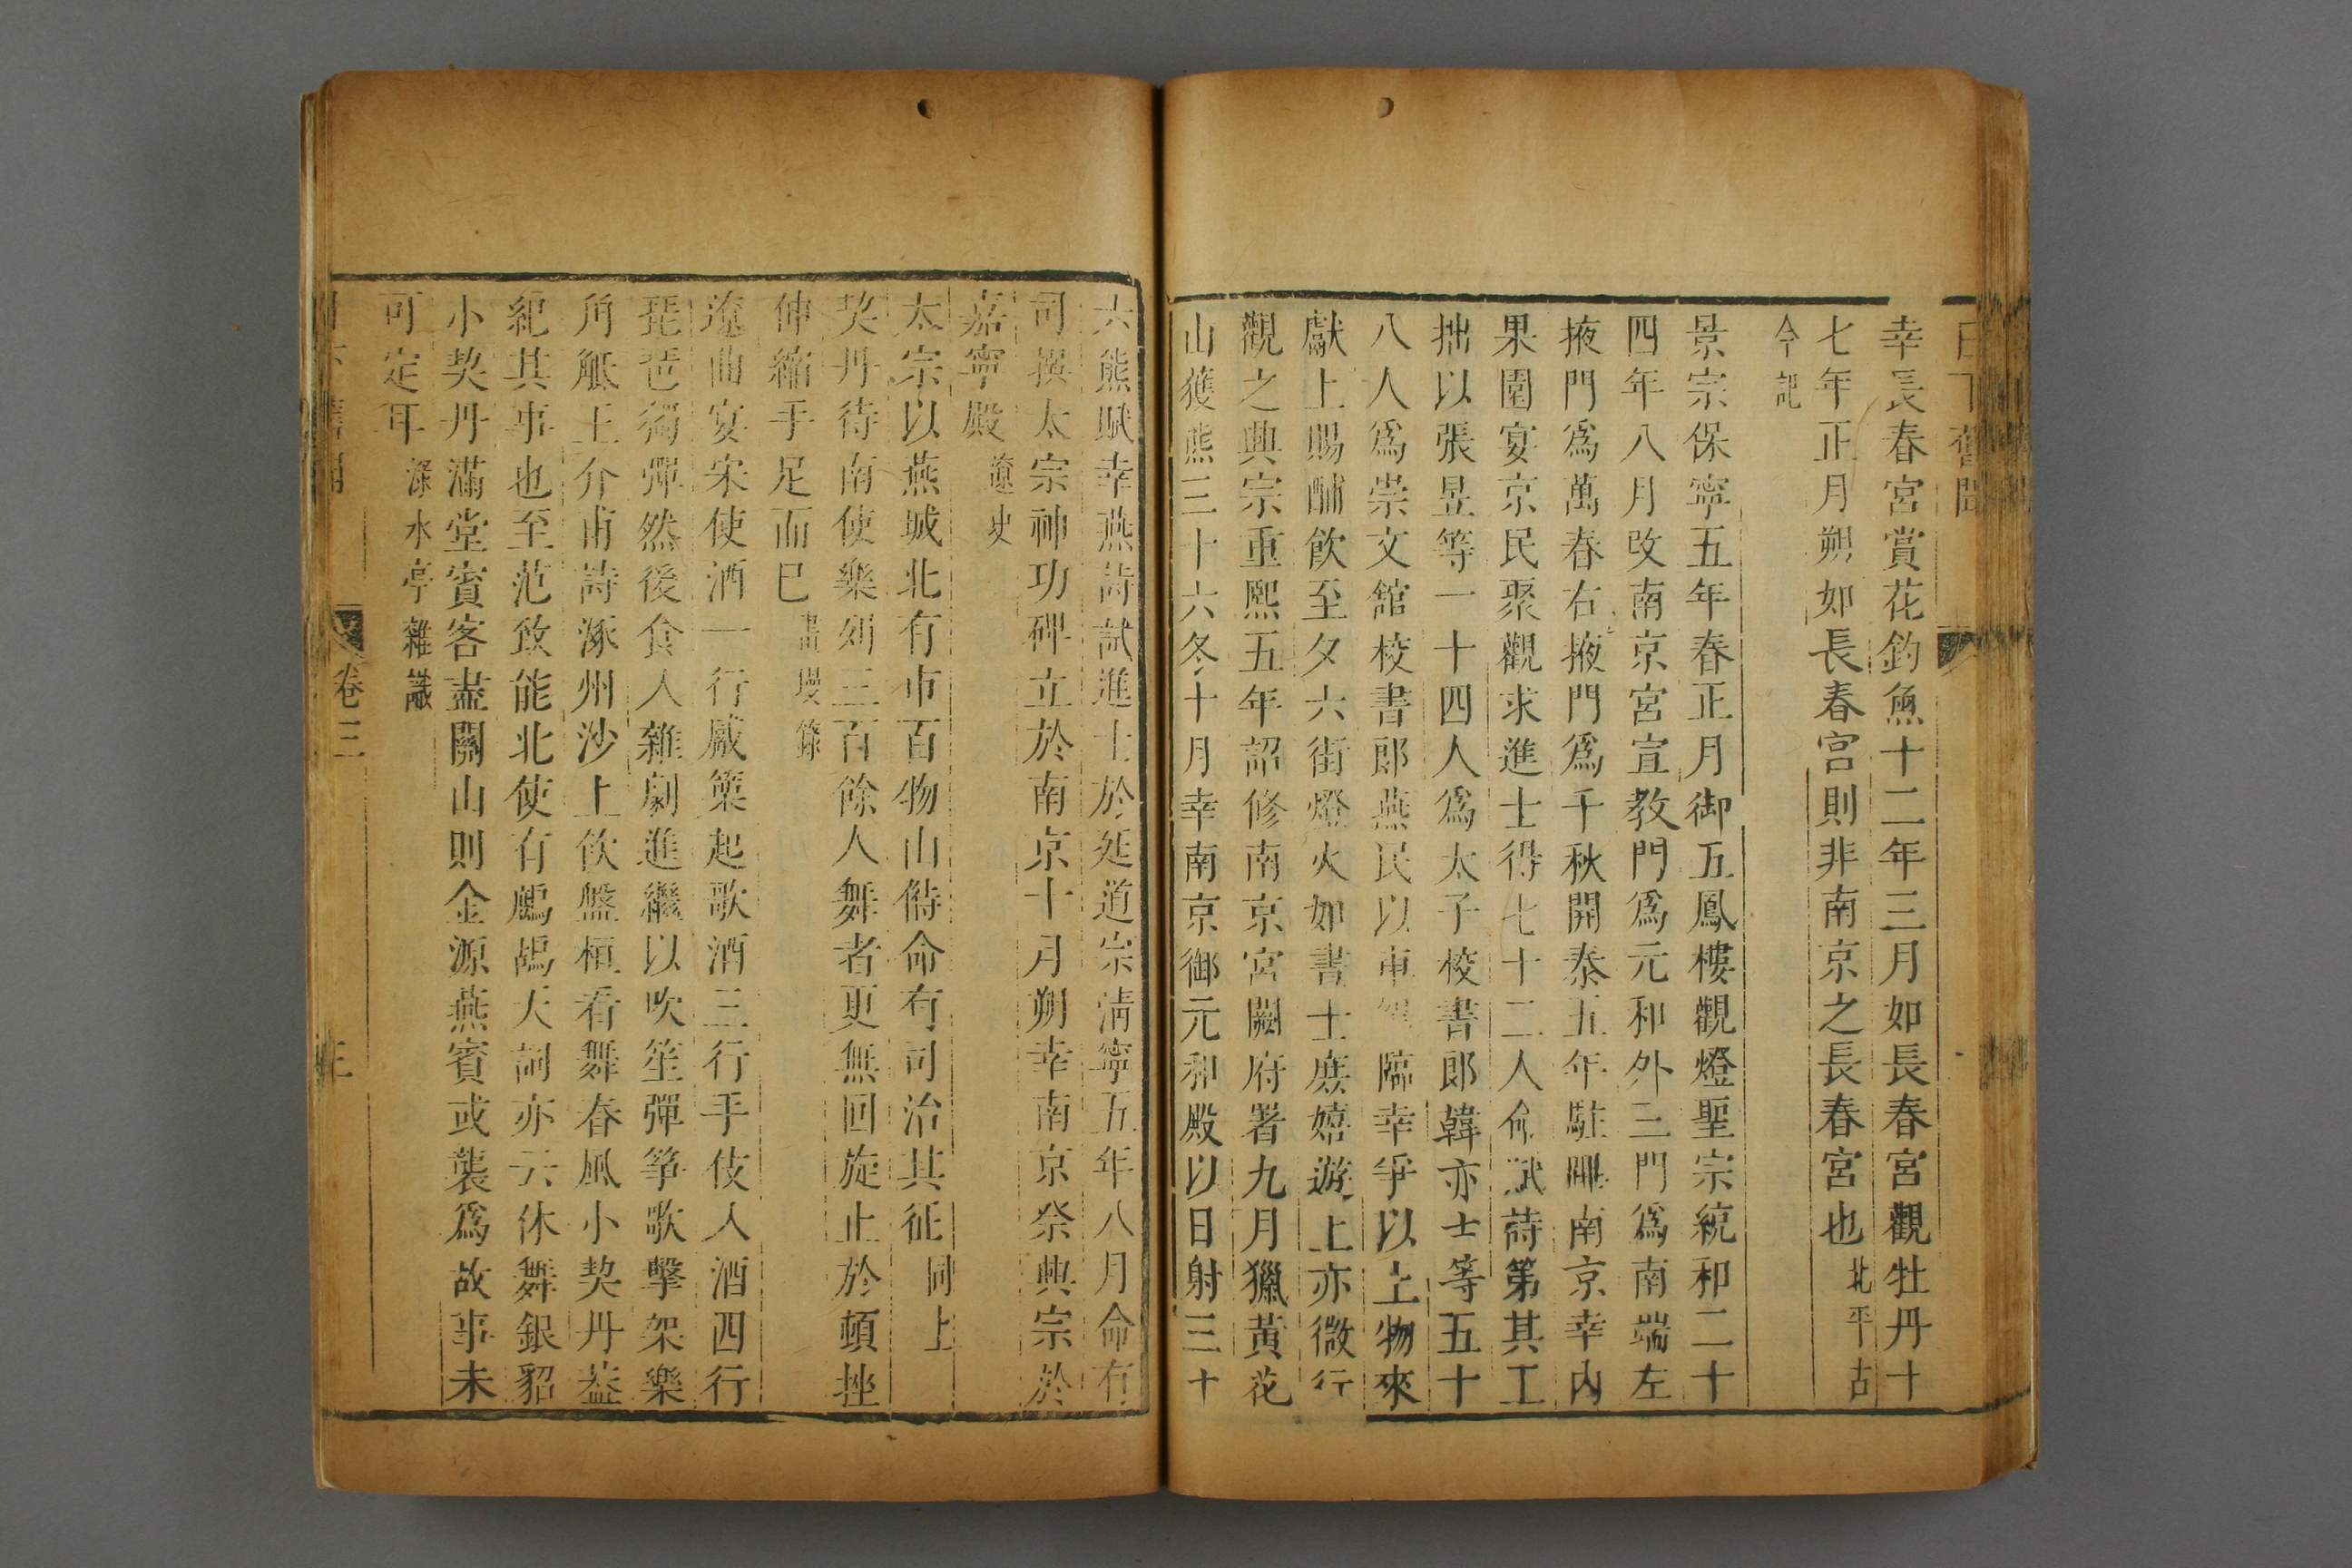 日下舊聞
幸長春宮賞花釣魚十二年三月如長春宮觀牡丹十
七年正月朔如長春宮則非南京之長春宮也北平古
今記
景宗保寧五年春正月御五鳳樓觀燈聖宗統和二十
四年八月改南京宮宣教門爲元和外三門爲南端左
掖門爲萬春右掖門爲千秋開泰五年駐蹕南京幸內
果園宴京民聚觀求進士得七十二人命賦詩第其工
拙以張昱等一十四人爲太子校書郎韓亦士等五十
八人爲崇文舘校書郎燕民以車駕臨幸爭以土物來
獻上賜酺飲至夕六街燈火如晝士庶嬉遊上亦微行
觀之興宗重熙五年詔修南京宮闕府署九月獵黃花
山獲熊三十六冬十月幸南京御元和殿以日射三十
六熊賦幸燕詩試進士於延道宗淸寧五年八月命有
司撰太宗神功碑立於南京十月朔幸南京祭興宗於
嘉寧殿遼史
太宗以燕城北有市百物山偫命有司治其征同上
契丹待南使樂列三百餘人舞者更無回旋止於頓挫
伸縮手足而已畫墁錄
遼曲宴宋使酒一行觱篥起歌酒三行手伎入酒四行
琵琶獨彈然後食入雜劇進繼以吹笙彈箏歌擊架樂
角觝王介甫詩涿州沙上飲盤桓看舞春風小契丹葢
紀其事也至范致能北使有鷓鴣天詞亦云休舞銀貂
小契丹滿堂賓客盡關山則金源燕賓或襲爲故事未
可定耳淥水亭雜識
日下舊聞 卷三 三